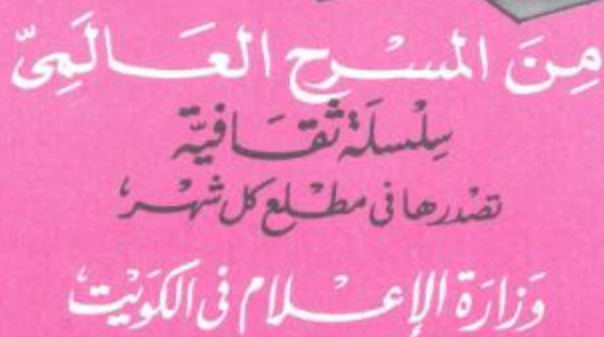 مِنَ المسْرح العَالَمِيّ
سِلْسلَة ثقَافيَّة
تصْدرها فى مطْلع كل شهْر
وَزارَة الإعْلام فى الكَويْت